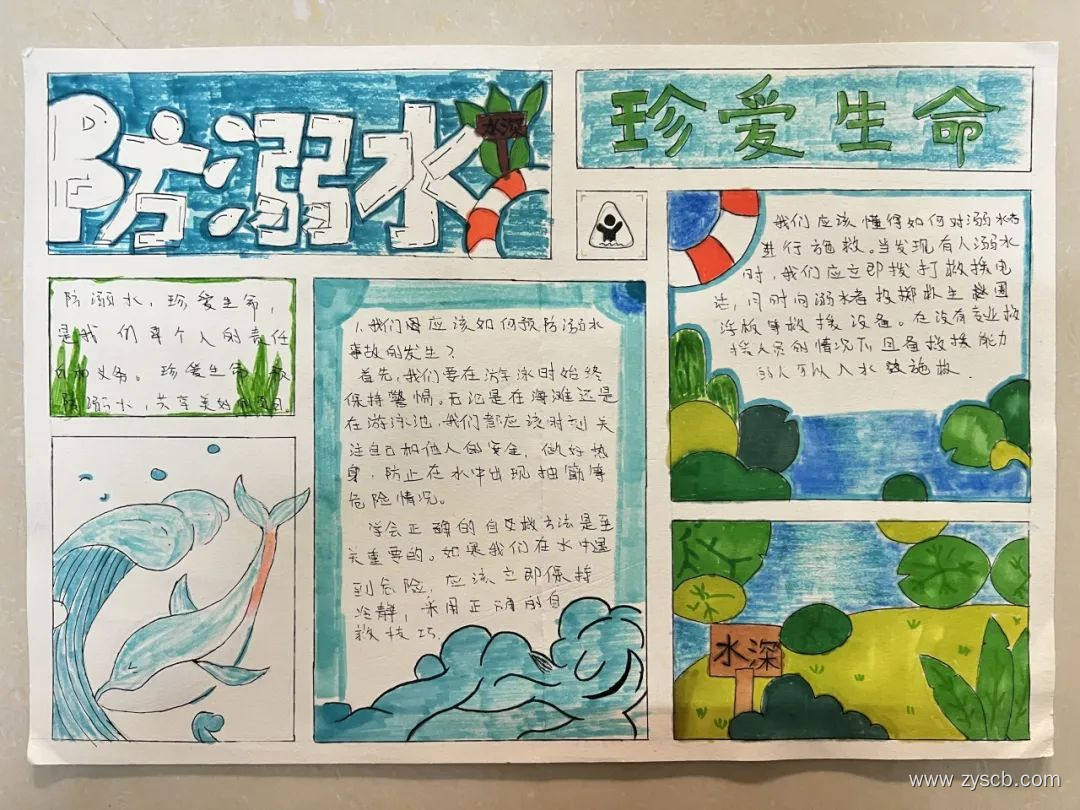 防溺水
水深
珍爱生命
防溺水，珍爱生命，
是我们每个人的责任
和义务。珍爱生命
防溺水，共享美好
1.我们应该如何预防溺水
事故的发生？
首先，我们要在游泳时始终
保持警惕。无论是在海滩还是
在游泳池，我们都应该时刻关
注自己和他人的安全，做好热
身，防止在水中出现抽筋等
危险情况。
学会正确的自救方法是至
关重要的。如果我们在水中遇
到危险，应该立即保持
冷静，采用正确的自
救技巧。
我们应该懂得如何对溺水者
进行施救。当发现有人溺水
时，我们应立即拨打救援电
话，同时向溺水者投掷救生圈
浮板等救援设备。在没有专业救
援人员的情况下且备救援能力
的人可以入水施救.
水深
www.zyscb.com